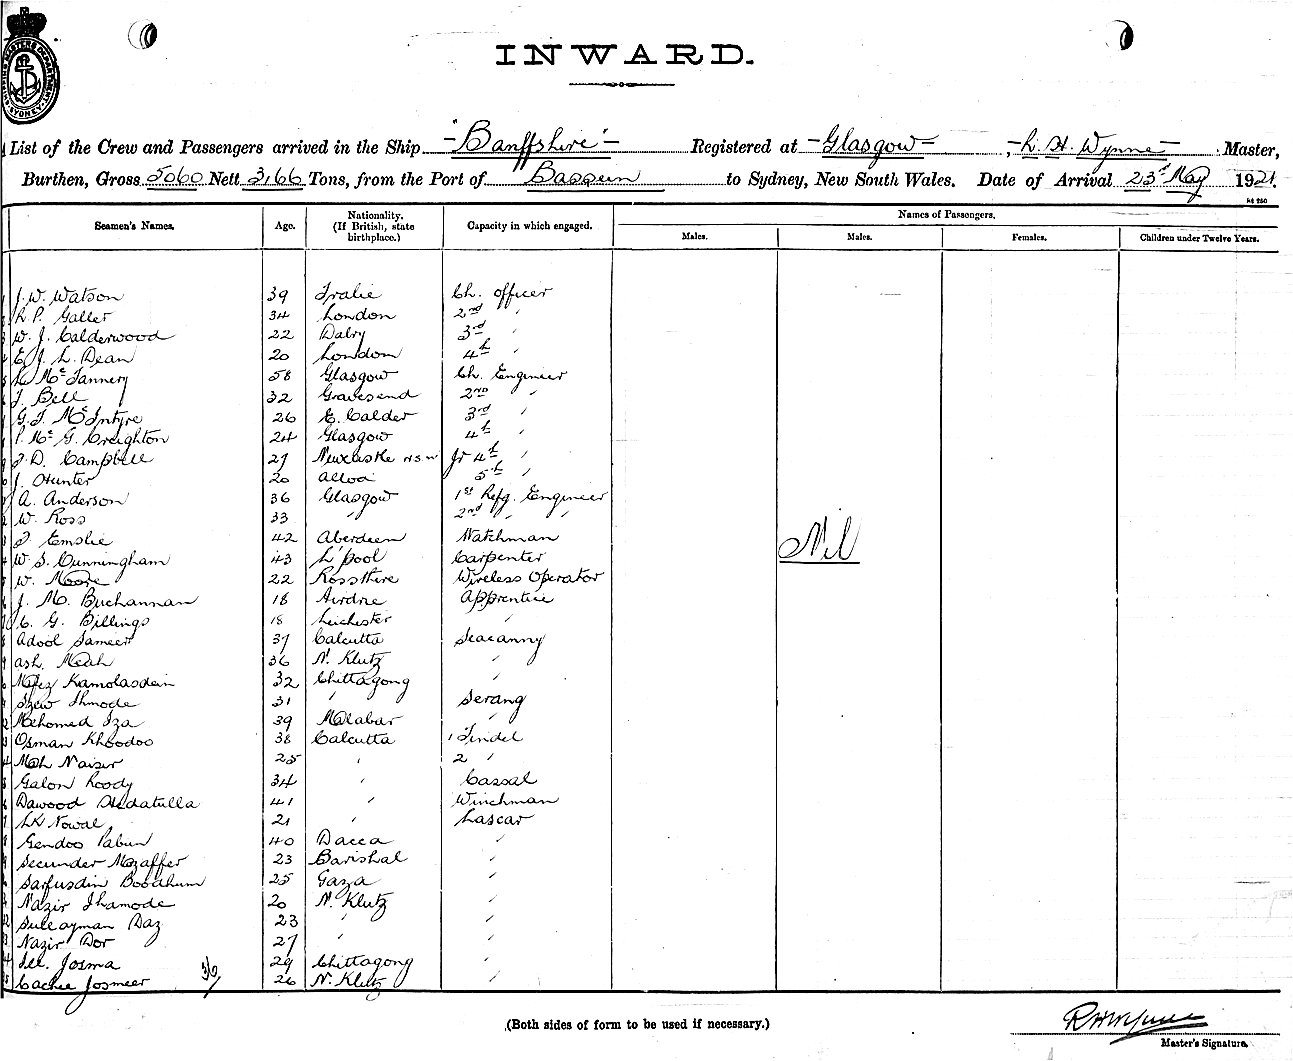 INWARD.
List of the Crew and Passengers arrived in the Ship "Banffshire" Registered at Glasgow, H. Wynne Master,
Burthen, Gross 5060 Nett 3,166 Tons, from the Port of Bassein to Sydney, New South Wales. Date of Arrival 23rd May 1921.
Seamen's Names. Age. Nationality. (If British, state birthplace.) Capacity in which engaged. Names of Passengers.
Males. Males. Females. Children under Twelve Years.
J. W. Watson 39 Tralie Ch. Officer
P. Galler 34 London 2nd "
W. J. Calderwood 22 Dalry 3rd "
E. J. L. Dean 20 London 4th "
Mc Tannery 58 Glasgow Ch. Engineer
J. Bell 32 Gravesend 2nd "
G. J. McIntyre 26 E. Calder 3rd "
P. Mc G. Creighton 24 Glasgow 4th "
J. D. Campbell 27 Newcastle N.S.W Jr 4th "
J. Hunter 20 Alloa 5th "
A. Anderson 36 Glasgow 1st Refg. Engineer
W. Ross 33 " 2nd " "
J. Emslie 42 Aberdeen Watchman
W. S. Cunningham 43 L'pool Carpenter
Nil
W. Moore 22 Rosshire Wireless Operator
J. M. Buchannan 18 Airdrie Apprentice
C. G. Billings 18 Leichester "
Adool Sameer 37 Calcutta Seacanny
Ash. Meah 36 N. Klutz "
Mafez Kamolasdein 32 Chittagong "
Ihmode 31 " Serang
Mehomed Iza 39 Malabar "
Osman Khoodoo 38 Calcutta 1 Tindel
Mah Naisur 25 " 2 "
Galon Roody 34 " Cassal
Dawood Hedatulla 41 " Winchman
Nowal 21 " Lascar
Gendoo Pabun 40 Dacca "
Secunder Mozaffer 23 Barishal "
Sarfusdin Boodhum 25 Gaza "
Nazir Ihamode 20 N. Klutz "
Suleayman Daz 23 " "
Nazir Dor 27 " "
Josma 29 Chittagong "
Cachee Josmeer 36/ 26 N. Klutz "
(Both sides of form to be used if necessary.)
Master's Signature.